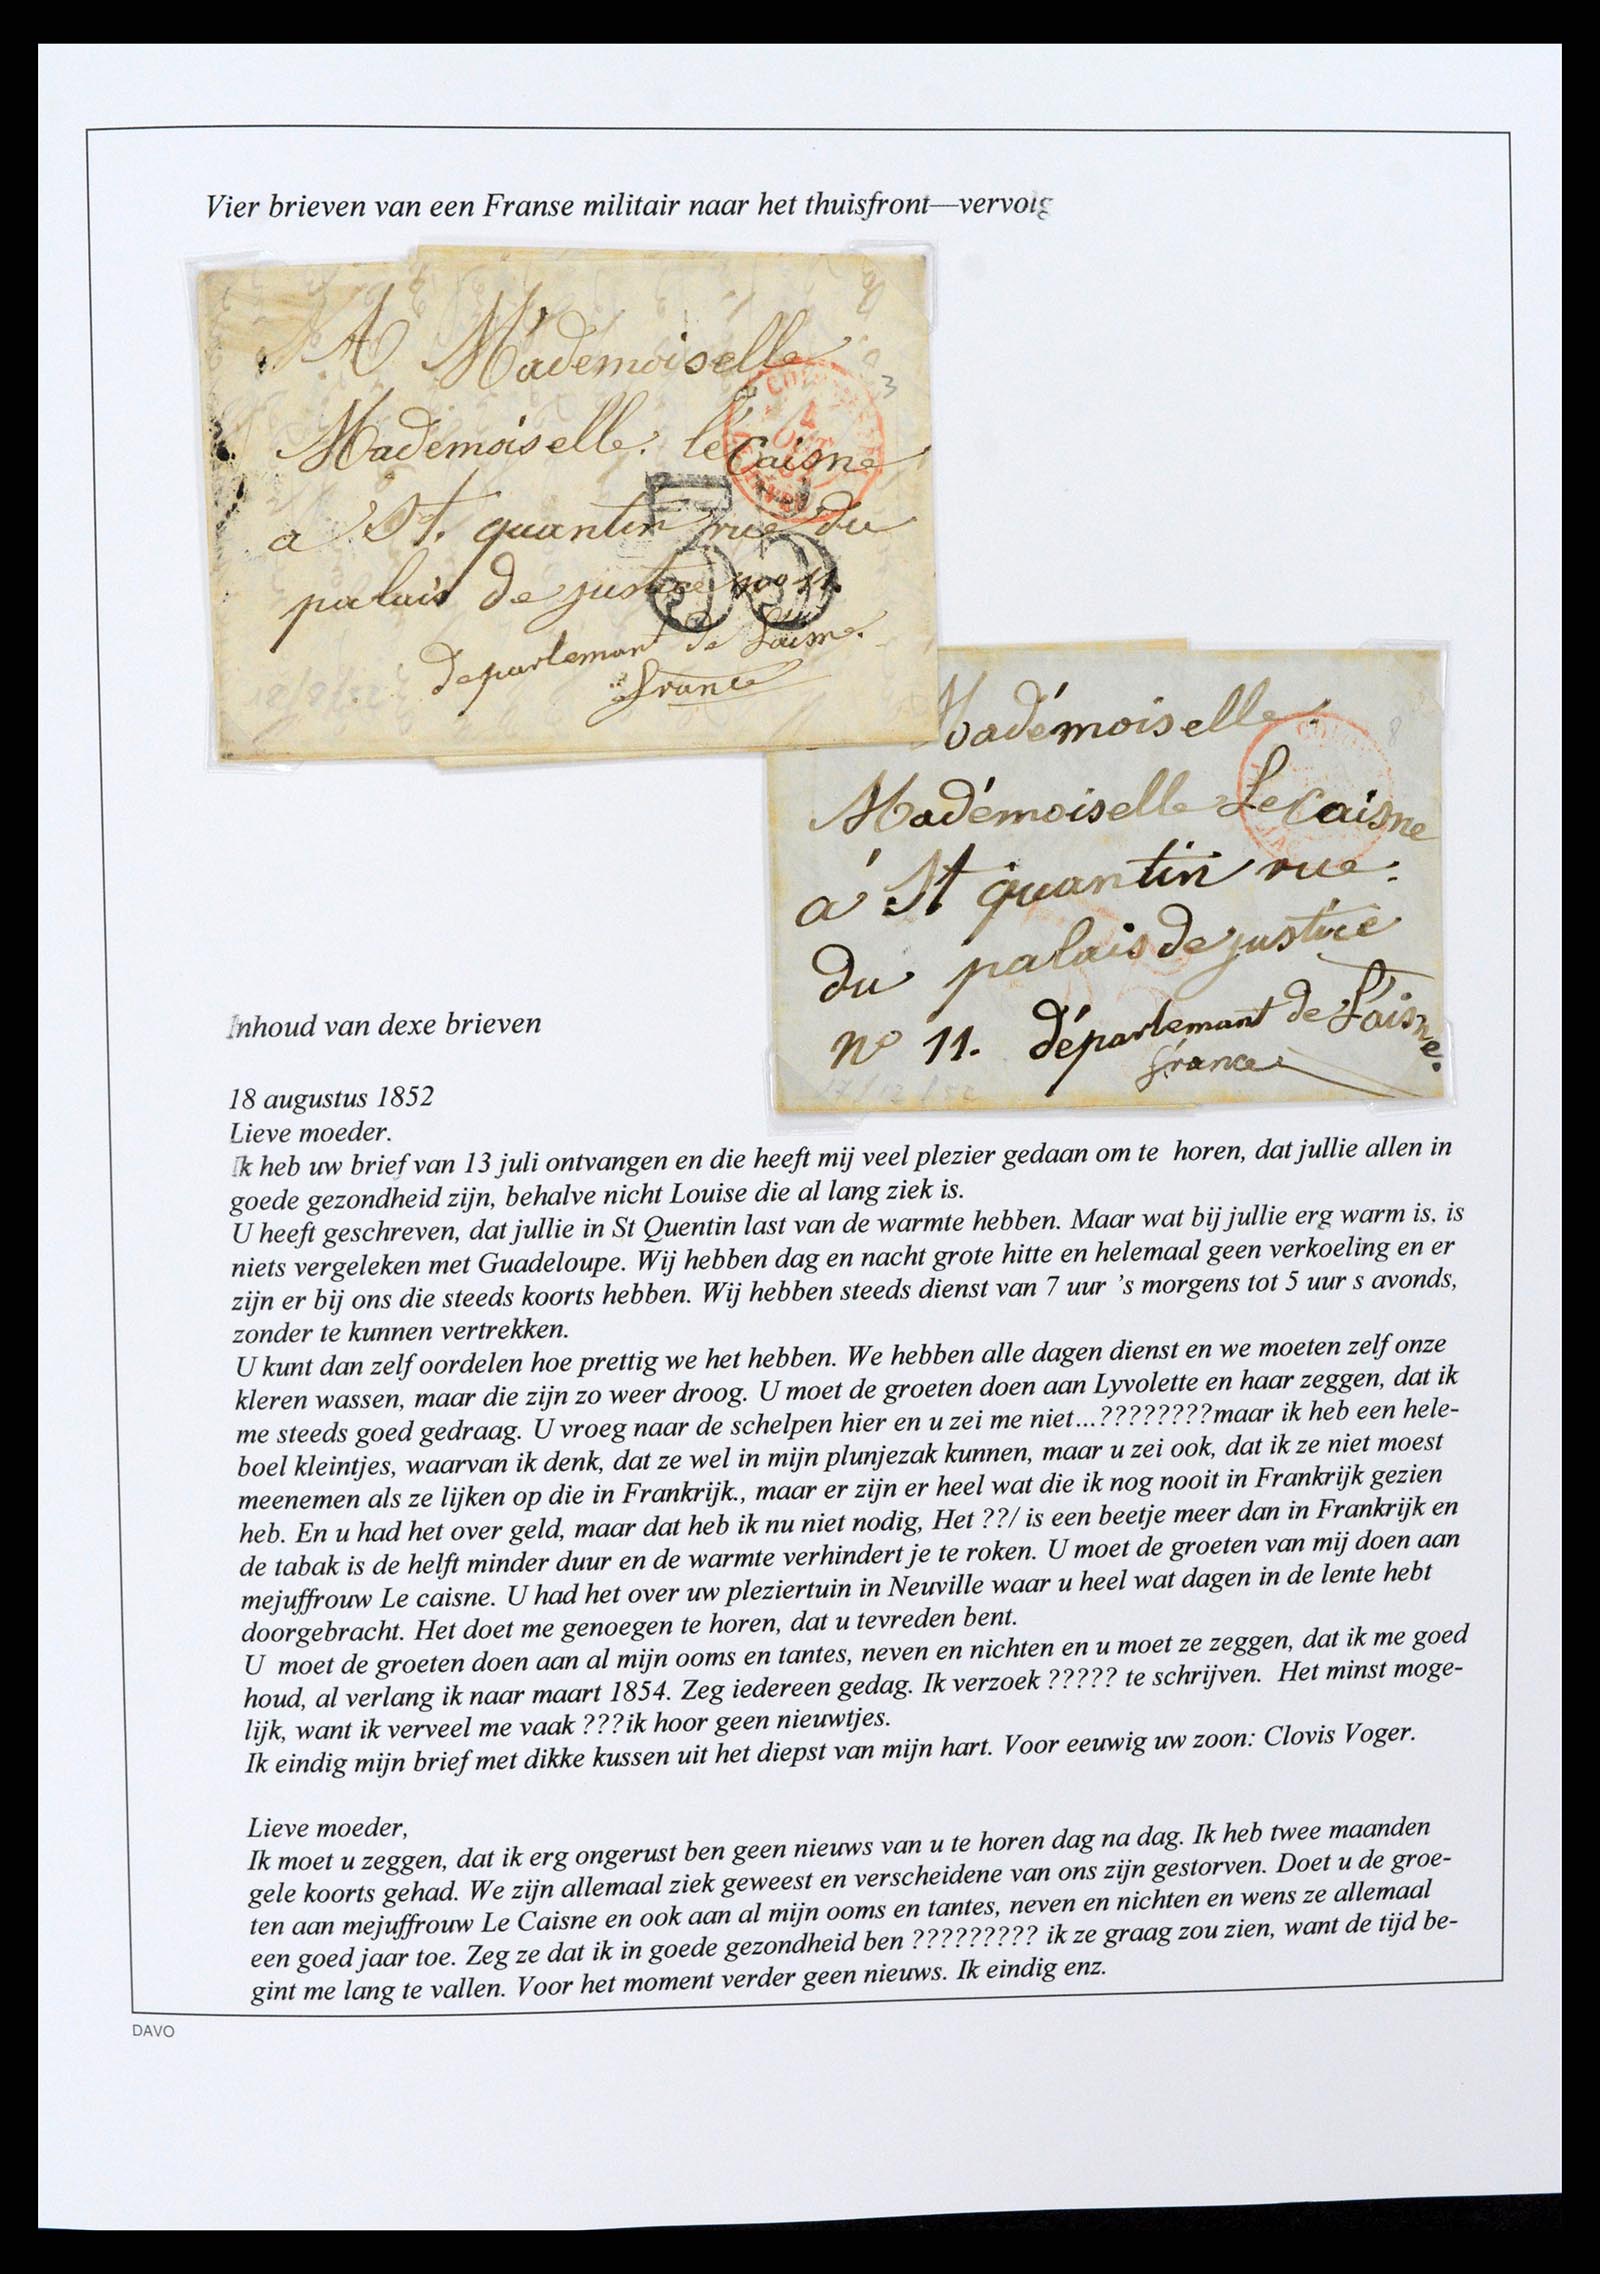 Vier brieven van een Franse militair naar het thuisfront—vervolg
A Mademoiselle
Mademoiselle. le Caisne
a St. quantin rue du
palais de justice no 11.
departemant de L'aisne.
france
3
Madémoiselle.
Madémoiselle Le Caisne
á St quantin rue.
du palais de justice
no 11. départemant de L'aisne.
france
8
17/12/52
Inhoud van dexe brieven
18 augustus 1852
Lieve moeder.
Ik heb uw brief van 13 juli ontvangen en die heeft mij veel plezier gedaan om te horen, dat jullie allen in
goede gezondheid zijn, behalve nicht Louise die al lang ziek is.
U heeft geschreven, dat jullie in St Quentin last van de warmte hebben. Maar wat bij jullie erg warm is, is
niets vergeleken met Guadeloupe. Wij hebben dag en nacht grote hitte en helemaal geen verkoeling en er
zijn er bij ons die steeds koorts hebben. Wij hebben steeds dienst van 7 uur ’s morgens tot 5 uur s avonds,
zonder te kunnen vertrekken.
U kunt dan zelf oordelen hoe prettig we het hebben. We hebben alle dagen dienst en we moeten zelf onze
kleren wassen, maar die zijn zo weer droog. U moet de groeten doen aan Lyvolette en haar zeggen, dat ik
me steeds goed gedraag. U vroeg naar de schelpen hier en u zei me niet...????????maar ik heb een hele-
boel kleintjes, waarvan ik denk, dat ze wel in mijn plunjezak kunnen, maar u zei ook, dat ik ze niet moest
meenemen als ze lijken op die in Frankrijk., maar er zijn er heel wat die ik nog nooit in Frankrijk gezien
heb. En u had het over geld, maar dat heb ik nu niet nodig, Het ??/ is een beetje meer dan in Frankrijk en
de tabak is de helft minder duur en de warmte verhindert je te roken. U moet de groeten van mij doen aan
mejuffrouw Le caisne. U had het over uw pleziertuin in Neuville waar u heel wat dagen in de lente hebt
doorgebracht. Het doet me genoegen te horen, dat u tevreden bent.
U moet de groeten doen aan al mijn ooms en tantes, neven en nichten en u moet ze zeggen, dat ik me goed
houd, al verlang ik naar maart 1854. Zeg iedereen gedag. Ik verzoek ????? te schrijven. Het minst moge-
lijk, want ik verveel me vaak ???ik hoor geen nieuwtjes.
Ik eindig mijn brief met dikke kussen uit het diepst van mijn hart. Voor eeuwig uw zoon: Clovis Voger.
Lieve moeder,
Ik moet u zeggen, dat ik erg ongerust ben geen nieuws van u te horen dag na dag. Ik heb twee maanden
gele koorts gehad. We zijn allemaal ziek geweest en verscheidene van ons zijn gestorven. Doet u de groe-
ten aan mejuffrouw Le Caisne en ook aan al mijn ooms en tantes, neven en nichten en wens ze allemaal
een goed jaar toe. Zeg ze dat ik in goede gezondheid ben ????????? ik ze graag zou zien, want de tijd be-
gint me lang te vallen. Voor het moment verder geen nieuws. Ik eindig enz.
DAVO